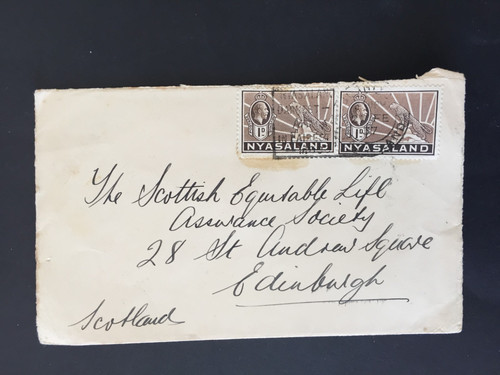 1D 1D
NYASALAND NYASALAND
The Scottish Equitable Life
Assurance Society
28 St Andrew Square
Edinburgh
Scotland